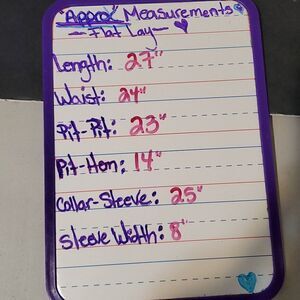 "Approx" Measurements
- Flat Lay -
Length: 27"
Waist: 24"
Pit-Pit: 23"
Pit-Hem: 14"
Collar-Sleeve: 25"
Sleeve Width: 8"